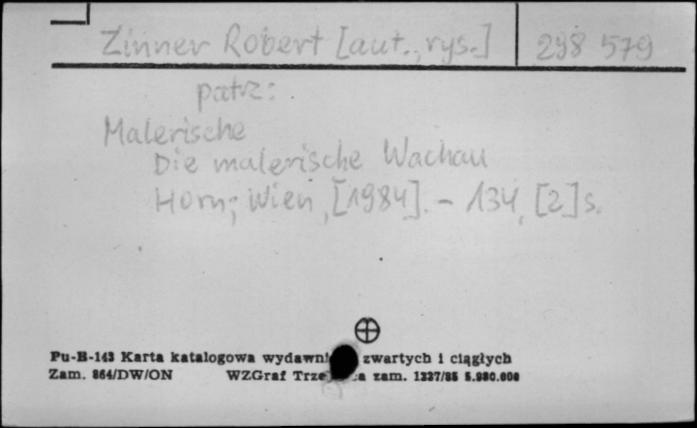 Zinner Robert [aut., rys.] 298 579
patrz:
Malerische
Die malerische Wachau
Horn; Wien, [1984]. - 134, [2] s.
Pu-B-143 Karta katalogowa zwartych i ciągłych
Zam. 864/DW/ON WZGraf zam. 1327/85 5.980.000